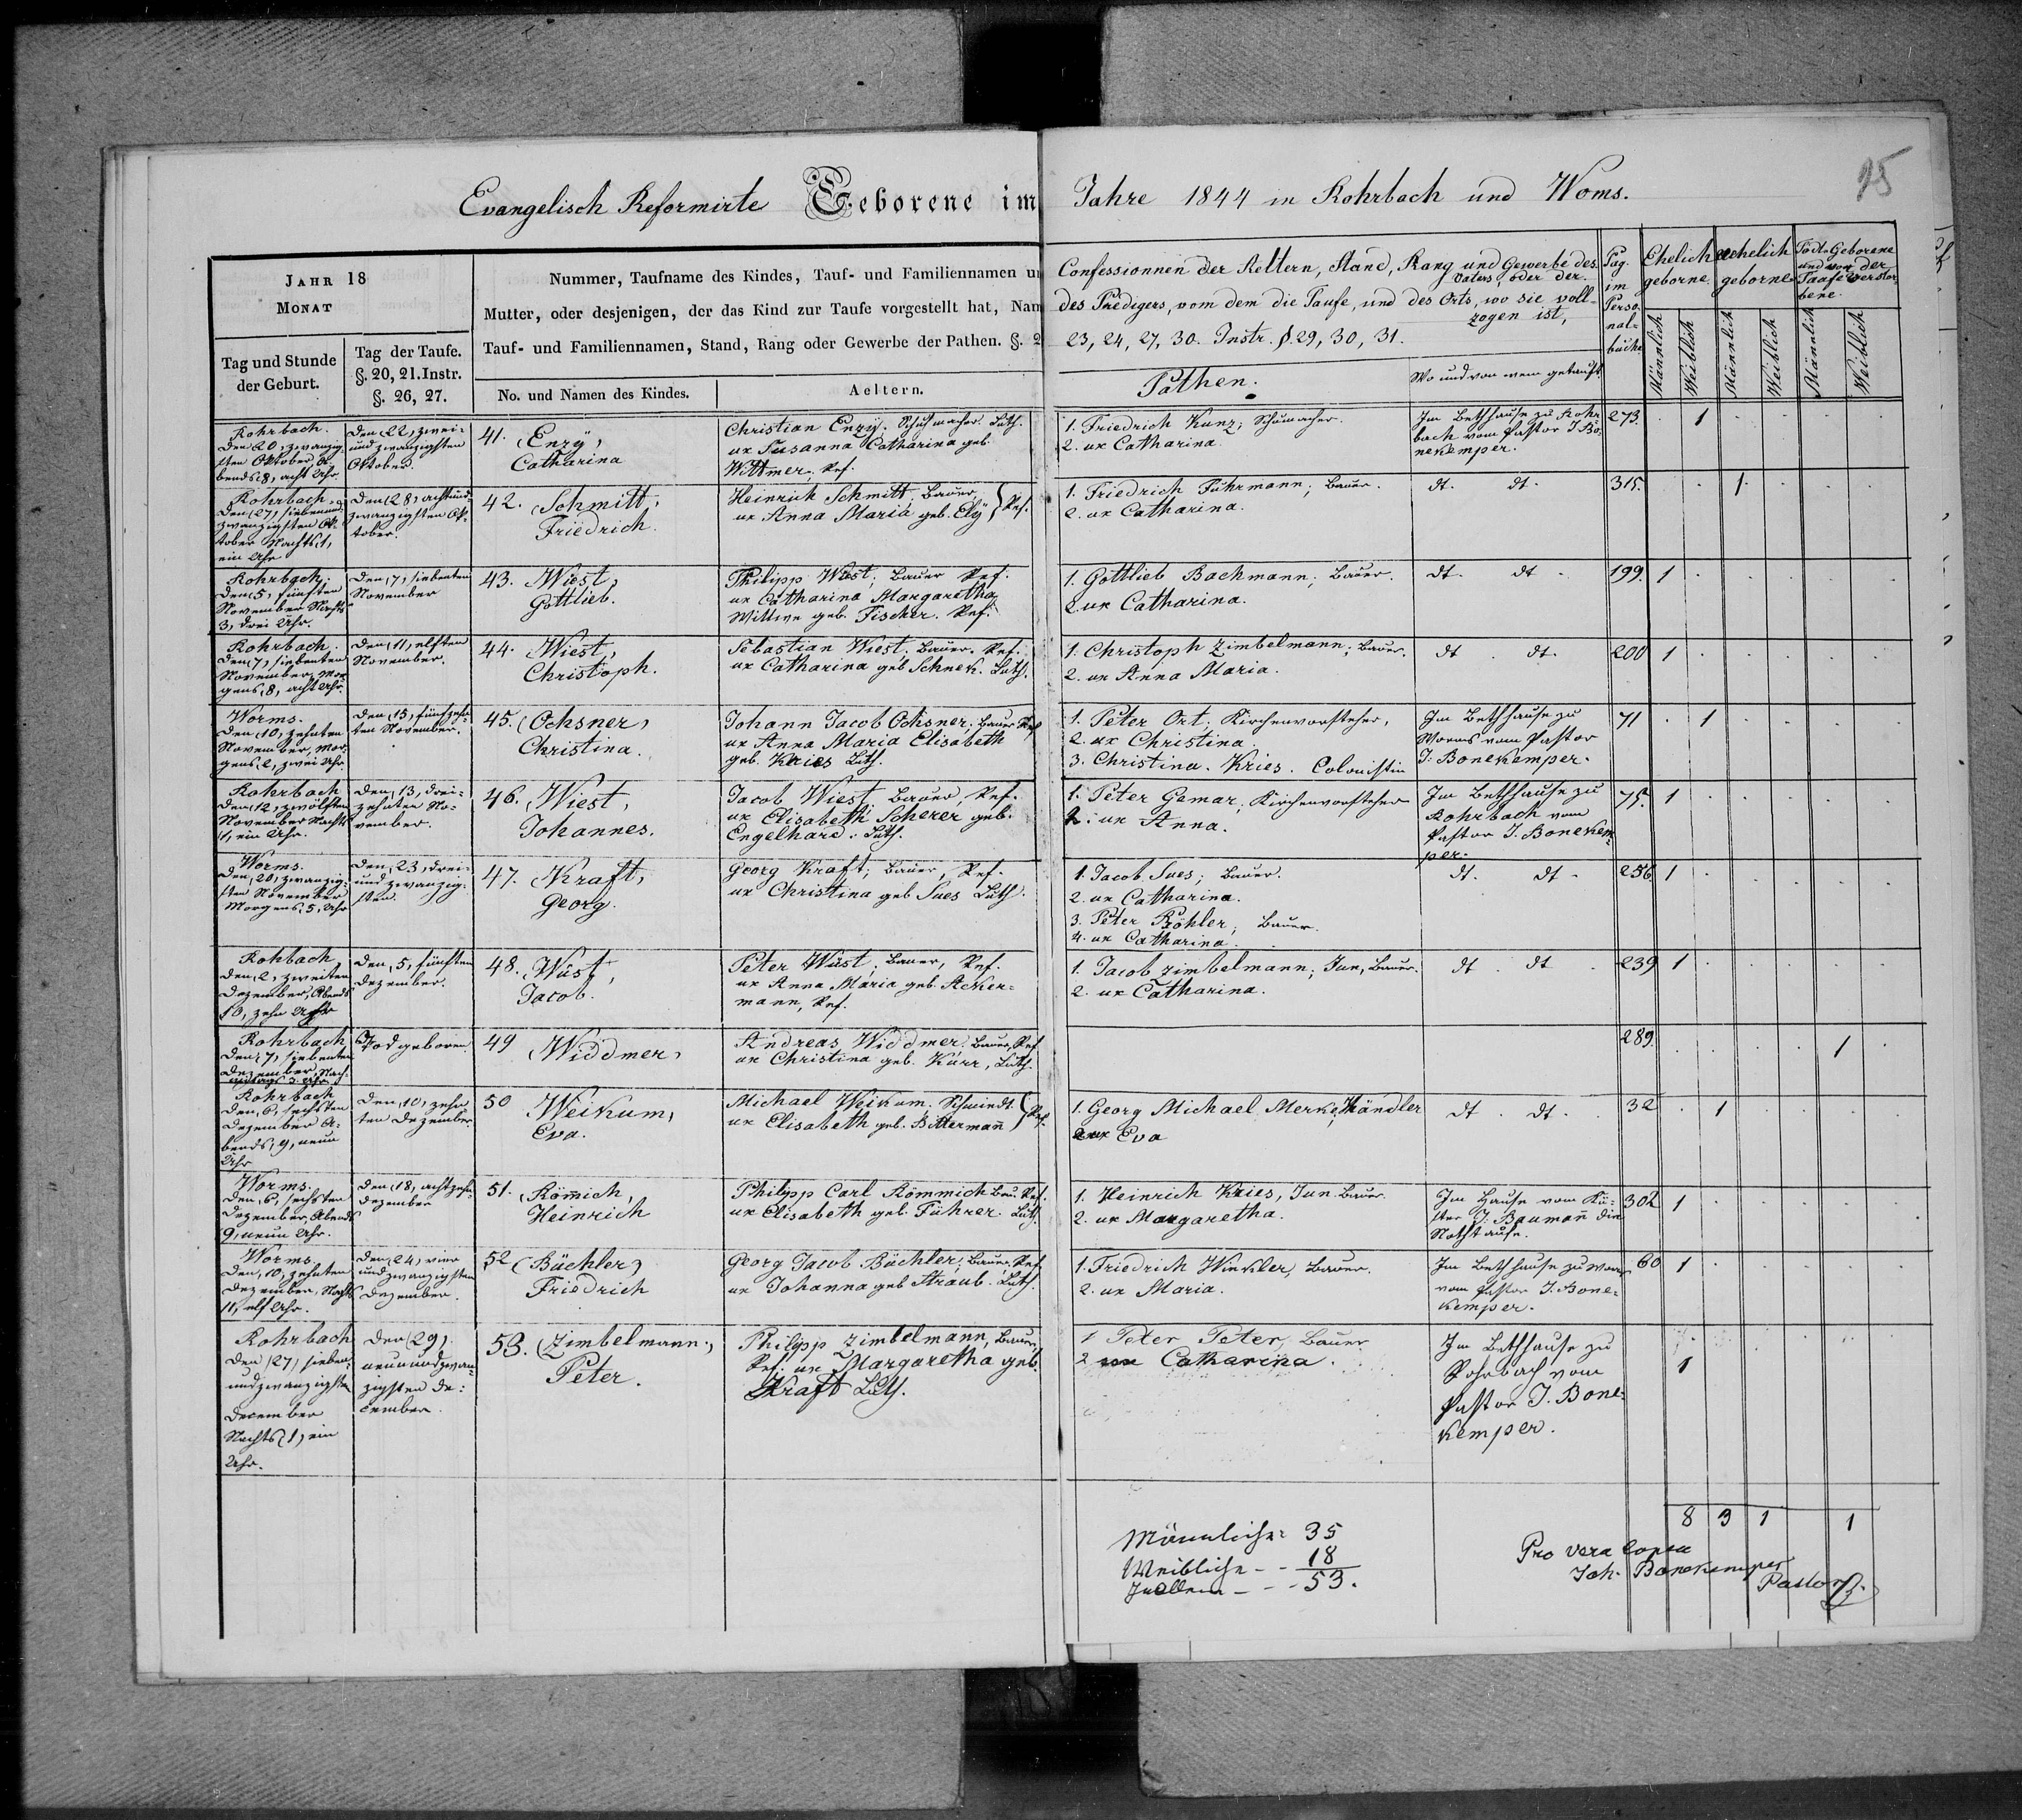 Evangelisch Reformirte Geborene im Jahre 1844 in Rohrbach und Woms.
25
JAHR 18
MONAT
Tag und Stunde
der Geburt.
Tag der Taufe.
§. 20, 21. Instr.
§. 26, 27.
Nummer, Taufname des Kindes, Tauf- und Familiennamen u
Mutter, oder desjenigen, der das Kind zur Taufe vorgestellt hat, Nam
Tauf- und Familiennamen, Stand, Rang oder Gewerbe der Pathen. §. 2
No. und Namen des Kindes.
Aeltern.
Confessionnen der Aeltern, Stand, Rang und Gewerbe des
Vaters, oder der
des Predigers, vom dem die Taufe, und des Orts, wo sie voll-
zogen ist,
23, 24, 27, 30. Instr. §. 29, 30, 31.
Pathen.
Wo und von wem getauft.
Pag.
im
Perso-
nal-
buche
Ehelich
geborne
unehelich
geborne
Todt-Geborene
und vor der
Taufe verstor-
bene.
Männlich
Weiblich
Männlich
Weiblich
Männlich
Weiblich
Rohrbach.
Den 20, zwanzig-
sten Oktober, A-
bends, 8, acht Uhr.
Den 22, zwei-
und zwanzigsten
Oktober.
41. Enzÿ,
Catharina
Christian Enzÿ. Schuhmacher. Luth.
ux Susanna Catharina geb.
Wittmer, Ref.
1. Friedrich Kunz; Schumacher.
2. ux Catharina.
Im Bethhause zu Rohr-
bach vom Pastor J. Bo-
nekemper.
273.
1
Rohrbach.
Den 27, siebenund-
zwanzigsten Ok-
tober Nachts 1,
ein Uhr
Den 28, achtund-
zwanzigsten Ok-
tober.
42. Schmitt,
Friedrich.
Heinrich Schmitt, Bauer,
ux Anna Maria geb. Elÿ } Ref.
1. Friedrich Fuhrmann; Bauer.
2. ux Catharina.
dt. dt.
315.
1
Rohrbach.
Den 5, fünften
November Nachts
3, drei Uhr.
Den 7, siebenten
November
43. Wiest,
Gottlieb.
Philipp Wiest; Bauer Ref.
ux Catharina Margaretha
Wittwe geb. Fischer. Ref.
1. Gottlieb Bachmann; Bauer.
2. ux Catharina.
dt. dt.
199.
1
Rohrbach.
Den 7, siebenten
November, Mor-
gens, 8, acht Uhr.
Den 11, elften
November.
44. Wiest,
Christoph.
Sebastian Wiest. Bauer. Ref.
ux Catharina geb Schnek. Luth.
1. Christoph Zimbelmann; Bauer.
2. ux Anna Maria.
dt. dt.
200
1
Worms.
Den 10, zehnten
November, Mor-
gens, 2, zwei Uhr.
Den 15, fünfzehn-
ten November.
45. Ochsner,
Christina.
Johann Jacob Ochsner. Bauer Ref.
ux Anna Maria Elisabeth
geb. Kries Luth.
1. Peter Ort. Kirchenvorsteher,
2. ux Christina
3. Christina. Kries. Colonistin
Im Bethhause zu
Worms vom Pastor
J. Bonekemper.
71
1
Rohrbach
Den 12, zwölften
November Nachts
1, ein Uhr.
Den 13, drei-
zehnten No-
vember.
46. Wiest,
Johannes.
Jacob Wiest, Bauer, Ref.
ux Elisabeth Scherer geb.
Engelhard. Luth.
1. Peter Gemar, Kirchenvorsteher
2. ux Anna.
Im Bethhause zu
Rohrbach vom
Pastor J. Bonekem-
per.
75.
1
Worms.
Den 20, zwanzig-
sten November
Morgens, 5, Uhr
Den 23, drei-
und zwanzig-
sten.
47. Kraft,
Georg.
Georg Kraft; Bauer, Ref.
ux Christina geb Sues Luth.
1. Jacob Sues; Bauer.
2. ux Catharina.
3. Peter Röhler; Bauer.
4. ux Catharina.
dt. dt.
256.
1
Rohbach
Den 2, zweiten
Dezember, Abends
10, zehn Uhr
Den 5, fünften
Dezember.
48. Wüst,
Jacob.
Peter Wüst, Bauer, Ref.
ux Anna Maria geb. Acker-
mann, Ref.
1. Jacob Zimbelmann; Jun, Bauer.
2. ux Catharina.
dt. dt
239
1
Rohrbach
Den 7, siebenten
Dezember, Nach-
mittags 3. Uhr
Tod geboren
49 Widdmer,
Andreas Widdmer, Bauer, Ref.
ux Christina geb. Kurr, Luth.
289.
1
Rohrbach
Den 6, sechsten
Dezember A-
bends, 9, neun
Uhr
Den 10, zehn
ten Dezember
50 Weikum,
Eva.
Michael Weikum. Schmiedt.
ux Elisabeth geb. Bittermañ } Ref.
1. Georg Michael Merke, Händler
2. ux Eva
dt. dt.
32
1
Worms.
Den 6, sechsten
Dezember, Abends
9, neun Uhr.
Den 18, achtzehn
Dezember
51. Römich,
Heinrich
Philipp Carl Römmich Bau. Ref.
ux Elisabeth geb. Führer. Luth.
1. Heinrich Kries, Jun. Bauer.
2. ux Margaretha.
Im Hause vom Kü-
ster J. Baumañ die
Nothtaufe.
302
1
Worms
Den 10, zehnten
Dezember, Nachts
11, elf Uhr.
Den 24, vier
und zwanzigsten
Dezember.
52 Büchler,
Friedrich
Georg Jacob Büchler; Bauer, Ref.
ux Johanna geb Straub. Luth.
1. Friedrich Winkler, Bauer.
2. ux Maria.
Im Bethhause zu Worms
vom Pastor J. Bone-
kemper.
60
1
Rohrbach
Den 27, sieben-
und zwanzigsten
December
Nachts 1, ein
Uhr.
Den 29,
neun und zwan-
zigsten De-
cember.
53. Zimbelmann,
Peter.
Philipp Zimbelmann, Bauer,
Ref. ux Margaretha geb.
Kraft Luth.
1 Peter Peter, Bauer
2 ux Catharina.
Im Bethhause zu
Rohrbach vom
Pastor J. Bone-
kemper.
1
8 3 1 1
Männliche 35
Weibliche - - 18
In allem - - - 53.
Pro vera copia
Joh. Bonekemper
Pastor.